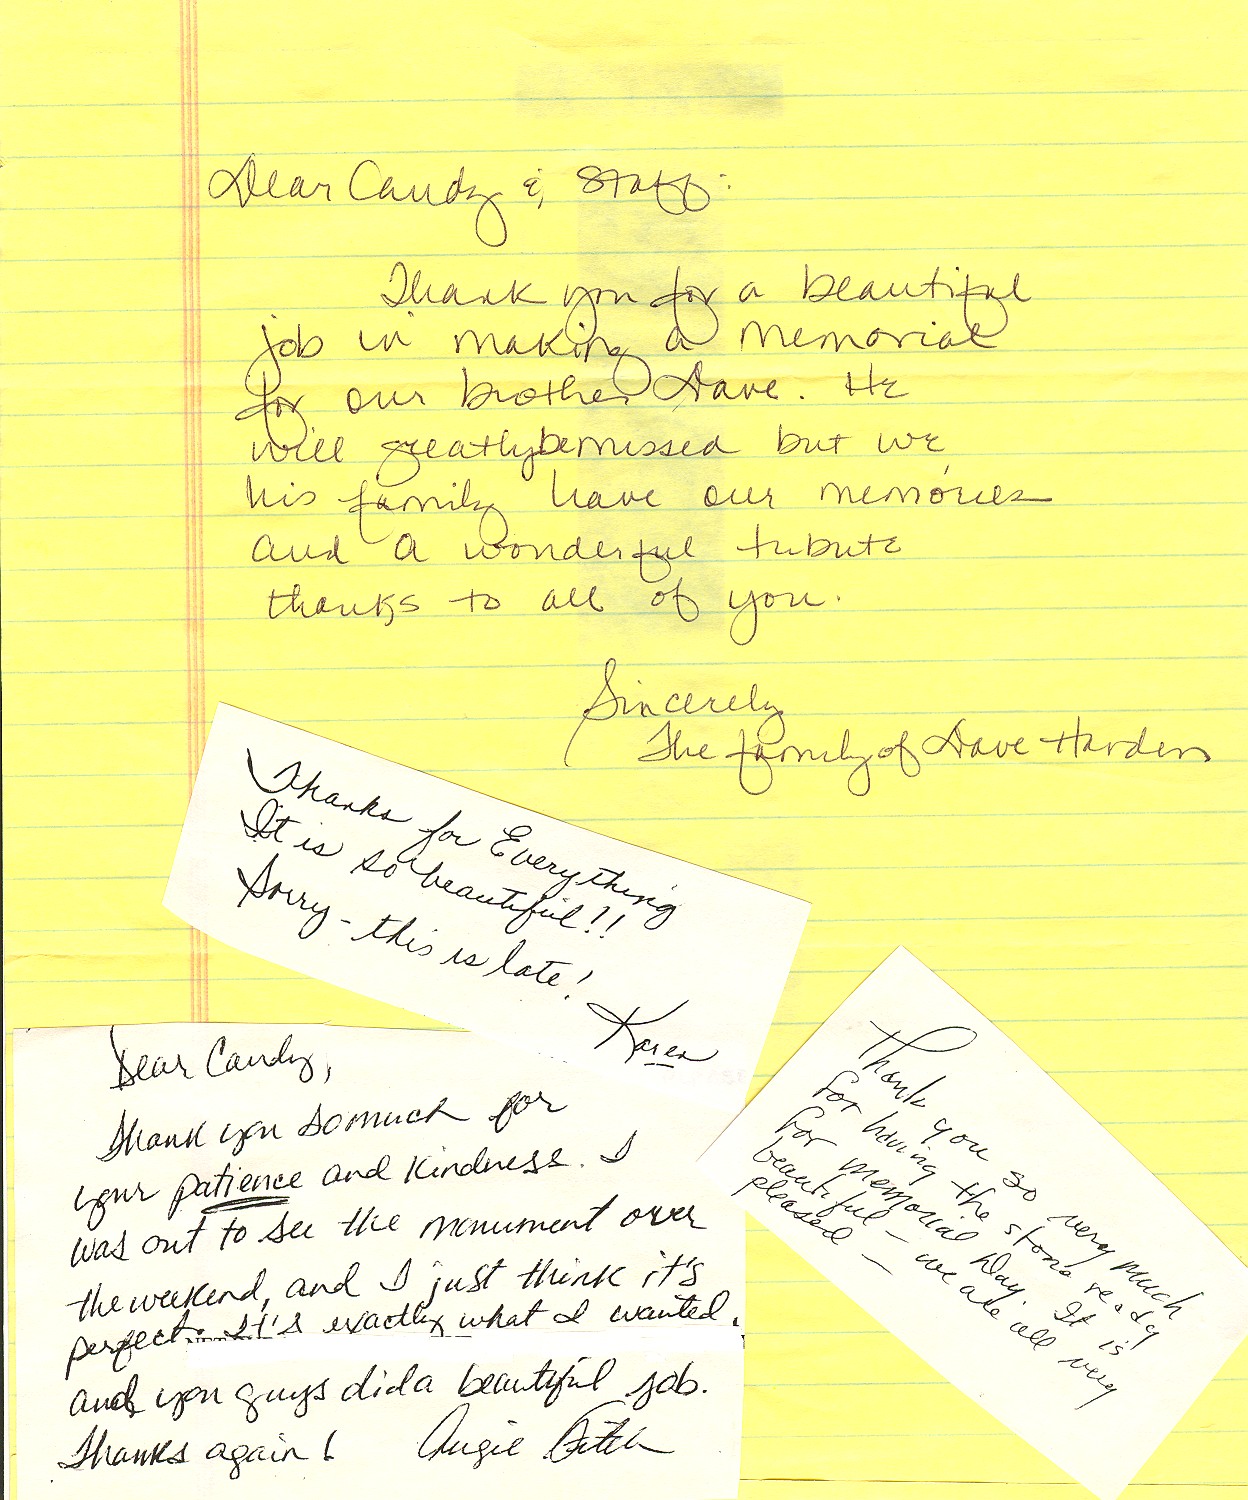 Dear Candy & Staff:
Thank you for a beautiful
job in making a memorial
for our brother Dave. He
will greatly be missed but we,
his family have our memories
and a wonderful tribute
thanks to all of you.
Sincerely
The family of Dave Harden
Thanks for Everything
It is so beautiful!!
Sorry - this is late!
Karen
Dear Candy,
Thank you so much for
your patience and kindness. I
was out to see the monument over
the weekend, and I just think it's
perfect. It's exactly what I wanted.
and you guys did a beautiful job.
Thanks again! Augie
Thank you so very much
for having the stone ready
for memorial Day. It is
beautiful - we are all very
pleased -